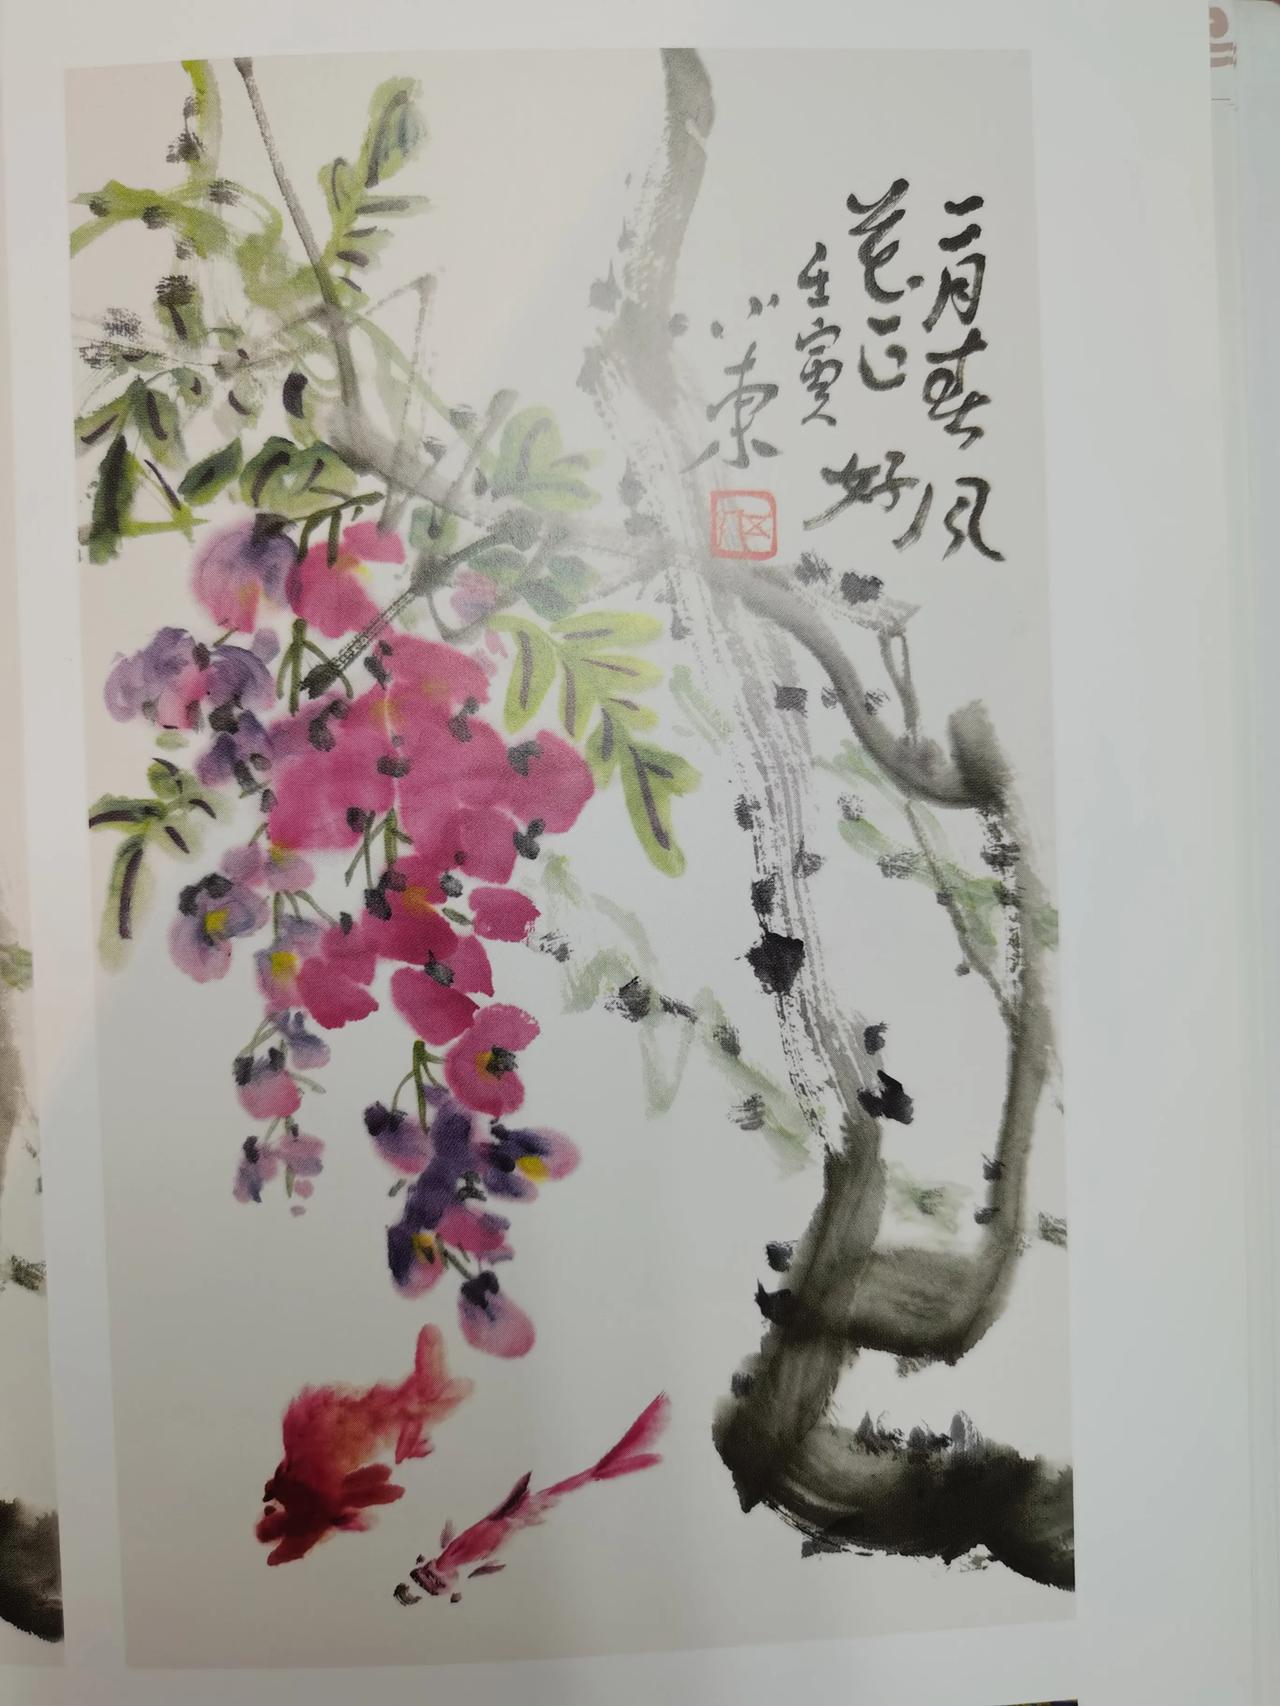 二月春风
花正好
壬寅
小東